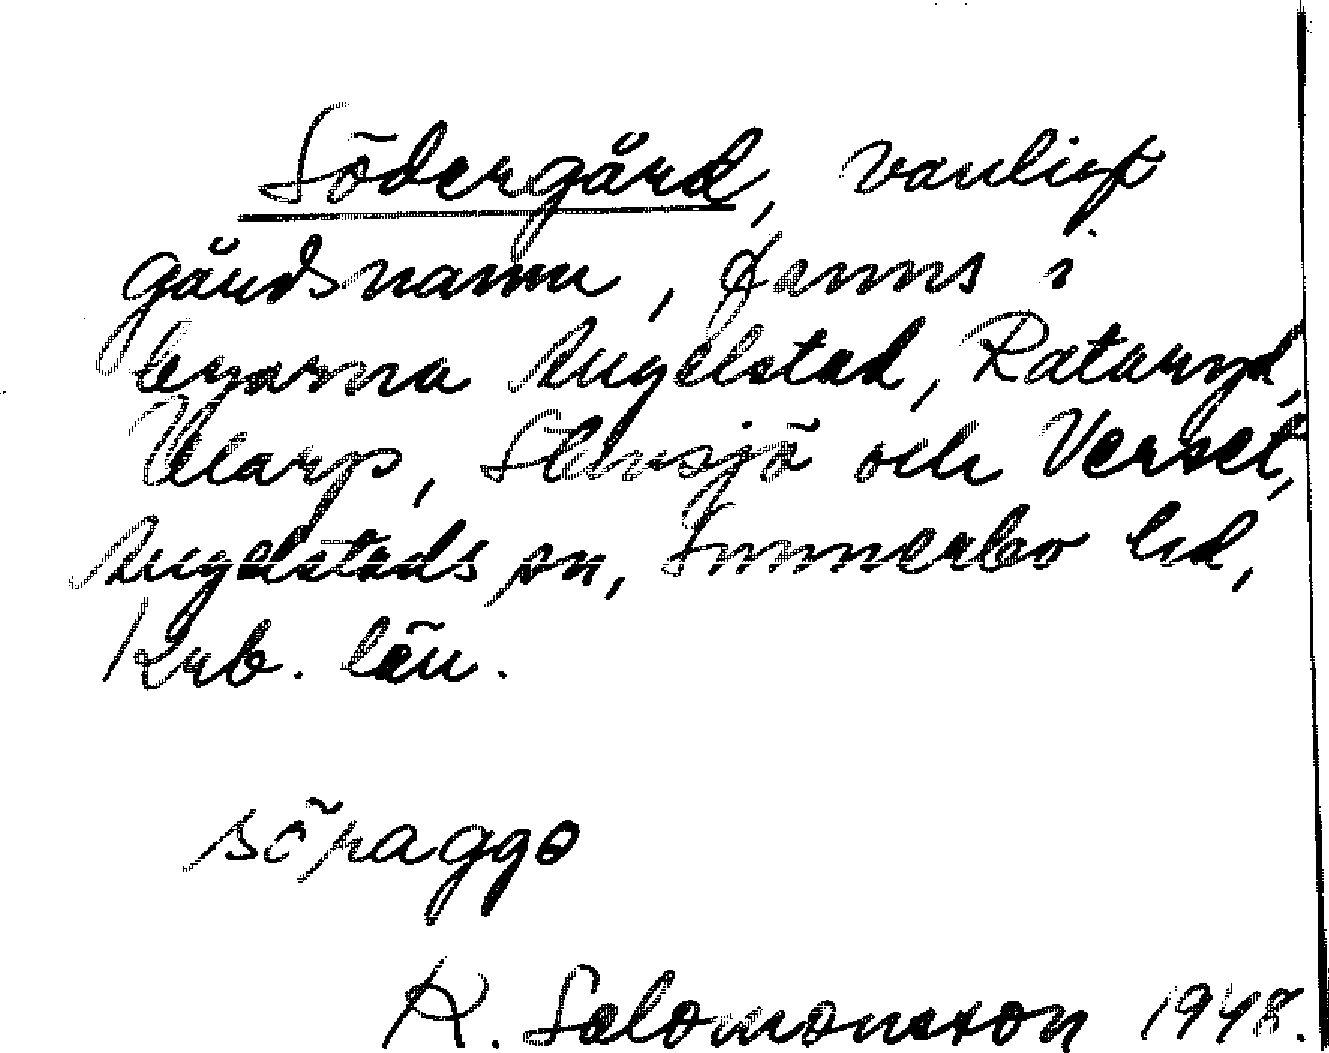 Södergård, vanligt
gårdsnamn, fanns i
byarna Angelstad, Rataryd,
Ularp, Slensjö och Verset,
Angelstads sn, Sunnerbo hd,
Krb. län.
söraggo
K. Salomonsson 1948.